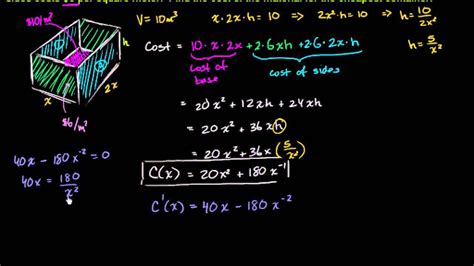 per square meter. Find the cost of the material for the cheapest container.
$10/m²
V = 10m³
x·2x·h = 10 ⇒ 2x²h = 10 ⇒ h = 10/2x²
h
x
2x
$6/m²
Cost = 10·x·2x + 2·6·xh + 2·6·2x·h
h = 5/x²
cost of base
cost of sides
= 20x² + 12xh + 24xh
= 20x² + 36xh
= 20x² + 36x(5/x²)
40x - 180x⁻² = 0
C(x) = 20x² + 180x⁻¹
40x = 180/x²
C'(x) = 40x - 180x⁻²